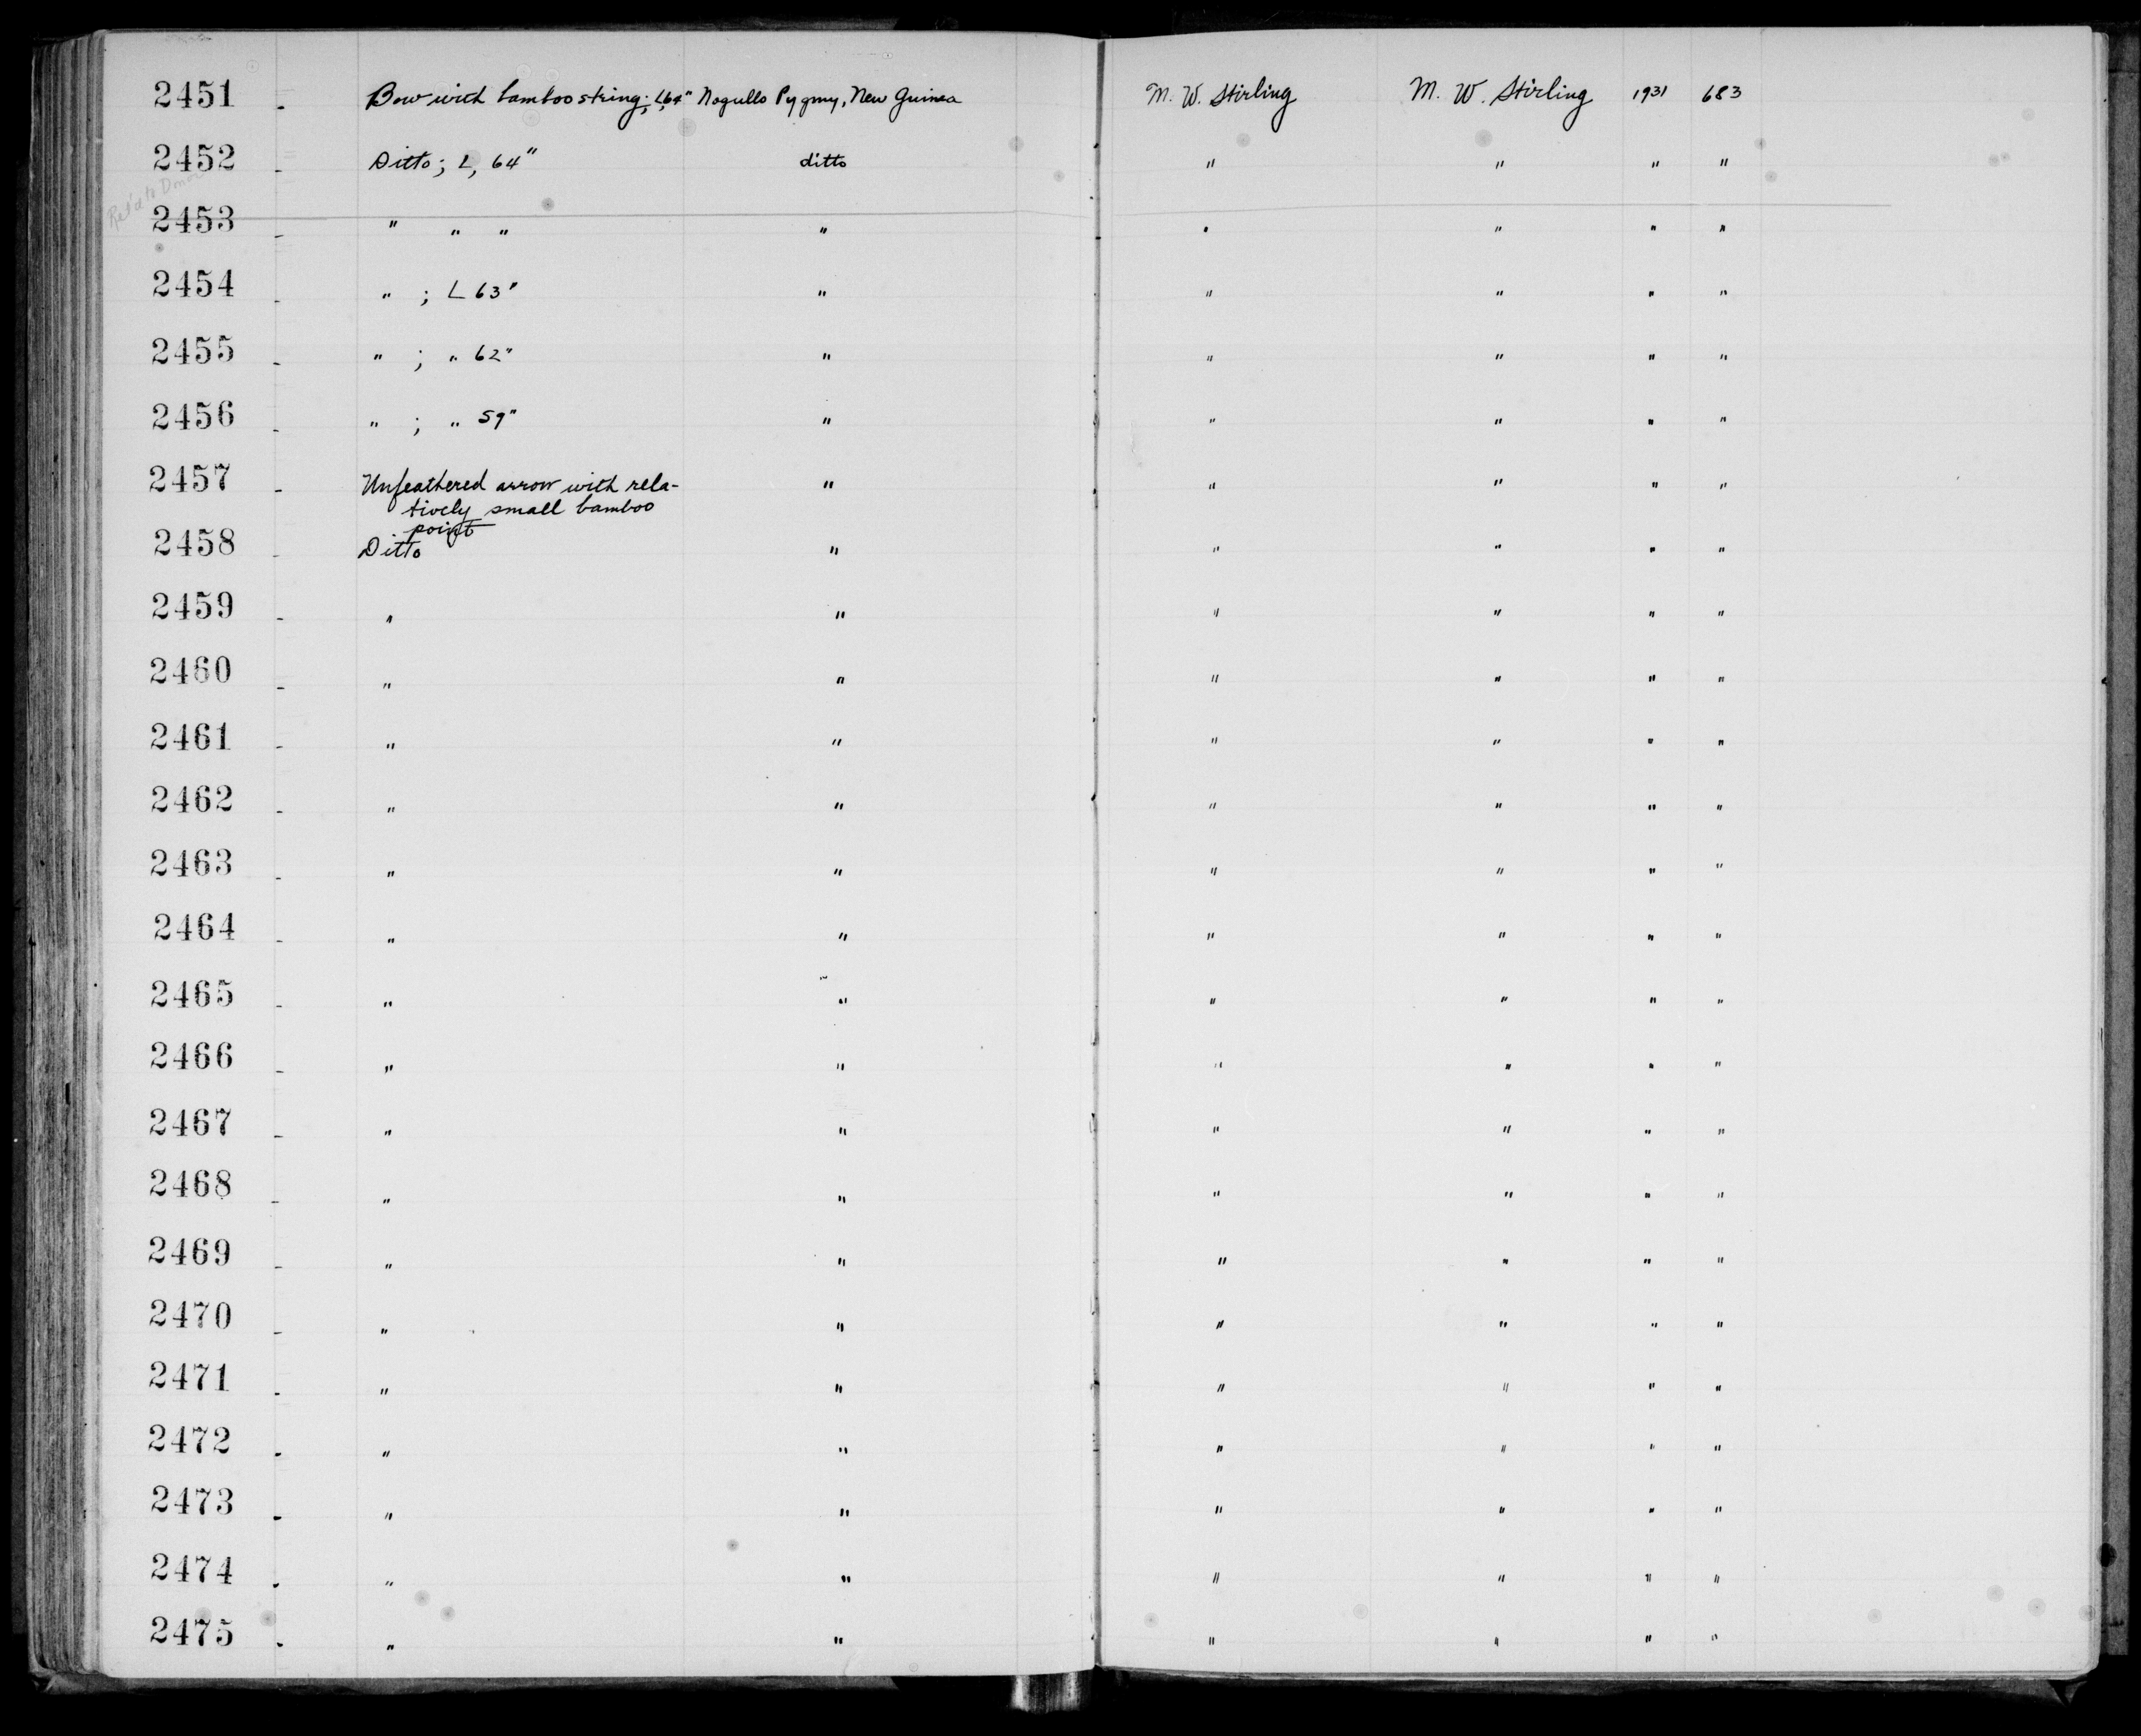 2451 - Bow with bamboo string; L, 64" Nogullo Pygmy, New Guinea M. W. Stirling M. W. Stirling 1931 683
2452 - Ditto; L, 64" ditto " " " "
Ret'd to Donor
2453 - " " " " " " " "
2454 - " ; L 63" " " " " "
2455 - " ; " 62" " " " " "
2456 - " ; " 59" " " " " "
2457 - Unfeathered arrow with rela- " " " " "
tively small bamboo
point
2458 - Ditto " " " " "
2459 - " " " " " "
2460 - " " " " " "
2461 - " " " " " "
2462 - " " " " " "
2463 - " " " " " "
2464 - " " " " " "
2465 - " " " " " "
2466 - " " " " " "
2467 - " " " " " "
2468 - " " " " " "
2469 - " " " " " "
2470 - " " " " " "
2471 - " " " " " "
2472 - " " " " " "
2473 - " " " " " "
2474 - " " " " " "
2475 - " " " " " "